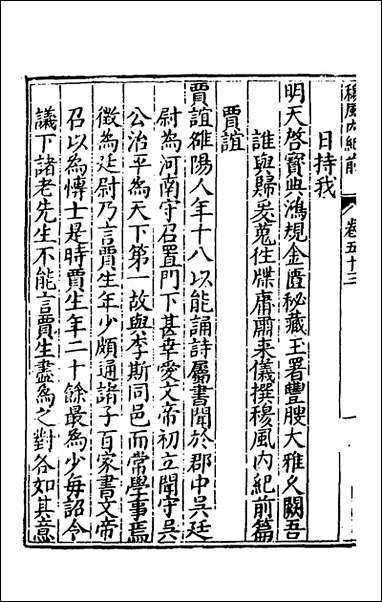 穆風內紀前 卷五十三
日持我
明天啓寶典鴻規金匱秘藏王署豐腴大雅久闕吾
誰與歸爰蒐往牒庸肅来儀撰穆風內紀前篇
賈誼
賈誼雒陽人年十八以能誦詩屬書聞於郡中吳廷
尉為河南守召置門下甚幸愛文帝初立聞守吳
公治平為天下第一故與李斯同邑而常學事焉
徵為廷尉乃言賈生年少頗通諸子百家書文帝
召以為博士是時賈生年二十餘最為少每詔令
議下諸老先生不能言賈生盡為之對各如其意